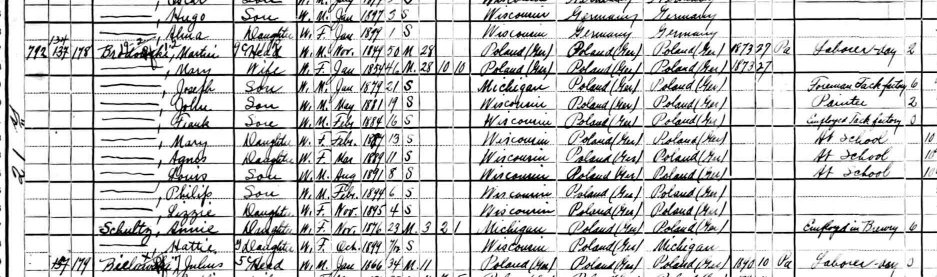 Son W. M. S Wisconsin Germany Germany
Hugo Son W. M. Jan 1897 3 S Wisconsin Germany Germany
Alma Daughter W. F. Jan 1899 1 S Wisconsin Germany Germany
792 137 178 Martin Head W. M. Nov. 1849 50 M 28 Poland (Ger) Poland (Ger) Poland (Ger) 1873 27 Pa Laborer-day 2
——, Mary Wife W. F. Jan 1854 46 M. 28 10 10 Poland (Ger) Poland (Ger) Poland (Ger) 1873 27
——, Joseph Son W. M. Jan 1879 21 S Michigan Poland (Ger) Poland (Ger) Foreman Tack factory 6
——, John Son W. M. May 1881 19 S Wisconsin Poland (Ger) Poland (Ger) Painter 2
——, Frank Son W. M. Feb. 1884 16 S Wisconsin Poland (Ger) Poland (Ger) Employed tack factory 3
——, Mary Daughter W. F. Feb. 1887 13 S Wisconsin Poland (Ger) Poland (Ger) At School 10
——, Agnes Daughter W. F. Mar 1889 11 S Wisconsin Poland (Ger) Poland (Ger) At School 10
——, Louis Son W. M. Aug 1891 8 S Wisconsin Poland (Ger) Poland (Ger) At School
——, Philip Son W. M. Feb. 1894 6 S Wisconsin Poland (Ger) Poland (Ger)
——, Lizzie Daughter W. F. Nov. 1895 4 S Wisconsin Poland (Ger) Poland (Ger)
Schultz, Annie Daughter W. F. Nov 1876 23 M 3 2 1 Michigan Poland (Ger) Poland (Ger) Employed in Brewery 6
——, Hattie G Daughter W. F. Oct. 1899 7/12 S Wisconsin Poland (Ger) Michigan
157 179 Julius Head W. M. Jan 1866 34 M. 11 Poland (Ger) Poland (Ger) Poland (Ger) 1890 10 Pa Laborer-day 3